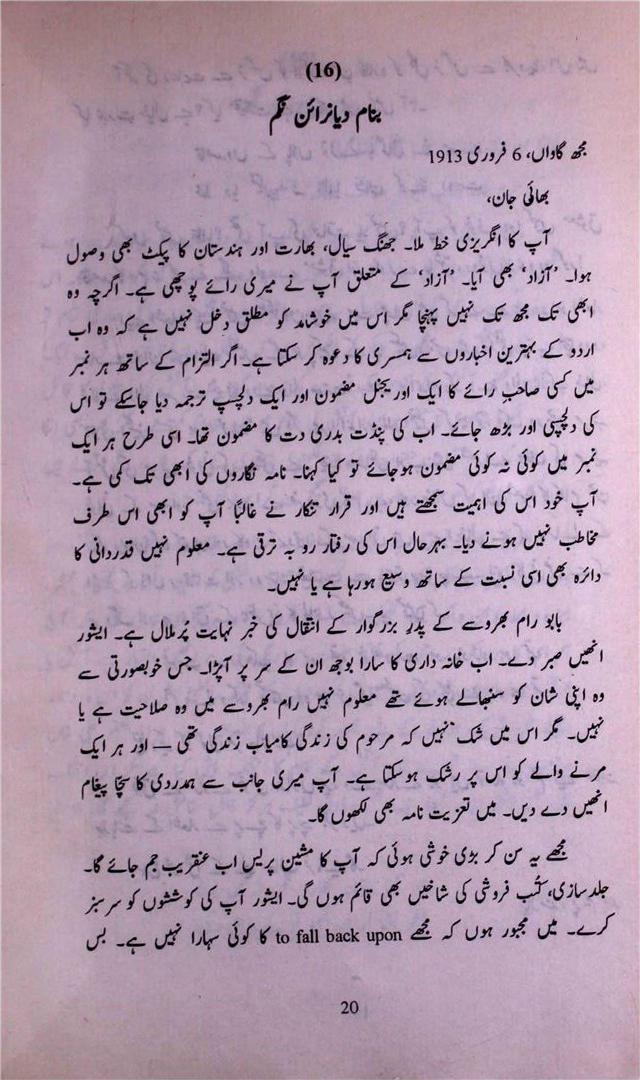 (16)
بنام دیانرائن نگم
مجھ گاواں، 6 فروری 1913
بھائی جان،
آپ کا انگریزی خط ملا۔ جھنگ سیال، بھارت اور ہندستان کا پیکٹ بھی وصول
ہوا۔ ’آزاد‘ بھی آیا۔ ’آزاد‘ کے متعلق آپ نے میری رائے پوچھی ہے۔ اگرچہ وہ
ابھی تک مجھ تک نہیں پہنچا مگر اس میں خوشامد کو مطلق دخل نہیں ہے کہ وہ اب
اردو کے بہترین اخباروں سے ہمسری کا دعوہ کر سکتا ہے۔ اگر التزام کے ساتھ ہر نمبر
میں کسی صاحب رائے کا ایک اوریجنل مضمون اور ایک دلچسپ ترجمہ دیا جاسکے تو اس
کی دلچسپی اور بڑھ جائے۔ اب کی پنڈت بدری دت کا مضمون تھا۔ اسی طرح ہر ایک
نمبر میں کوئی نہ کوئی مضمون ہوجائے تو کیا کہنا۔ نامہ نگاروں کی ابھی تک کمی ہے۔
آپ خود اس کی اہمیت سمجھتے ہیں اور قرار تنکار نے غالبًا آپ کو ابھی اس طرف
مخاطب نہیں ہونے دیا۔ بہرحال اس کی رفتار رو بہ ترقی ہے۔ معلوم نہیں قدردانی کا
دائرہ بھی اسی نسبت کے ساتھ وسیع ہورہا ہے یا نہیں۔
بابو رام بھروسے کے پدرِ بزرگوار کے انتقال کی خبر نہایت پُرملال ہے۔ ایشور
انھیں صبر دے۔ اب خانہ داری کا سارا بوجھ ان کے سر پر آپڑا۔ جس خوبصورتی سے
وہ اپنی شان کو سنبھالے ہوئے تھے معلوم نہیں رام بھروسے میں وہ صلاحیت ہے یا
نہیں۔ مگر اس میں شک نہیں کہ مرحوم کی زندگی کامیاب زندگی تھی — اور ہر ایک
مرنے والے کو اس پر رشک ہوسکتا ہے۔ آپ میری جانب سے ہمدردی کا سچّا پیغام
انھیں دے دیں۔ میں تعزیت نامہ بھی لکھوں گا۔
مجھے یہ سن کر بڑی خوشی ہوئی کہ آپ کا مشین پریس اب عنقریب جم جائے گا۔
جلدسازی، کُتب فروشی کی شاخیں بھی قائم ہوں گی۔ ایشور آپ کی کوششوں کو سرسبز
کرے۔ میں مجبور ہوں کہ مجھے to fall back upon کا کوئی سہارا نہیں ہے۔ بس
20